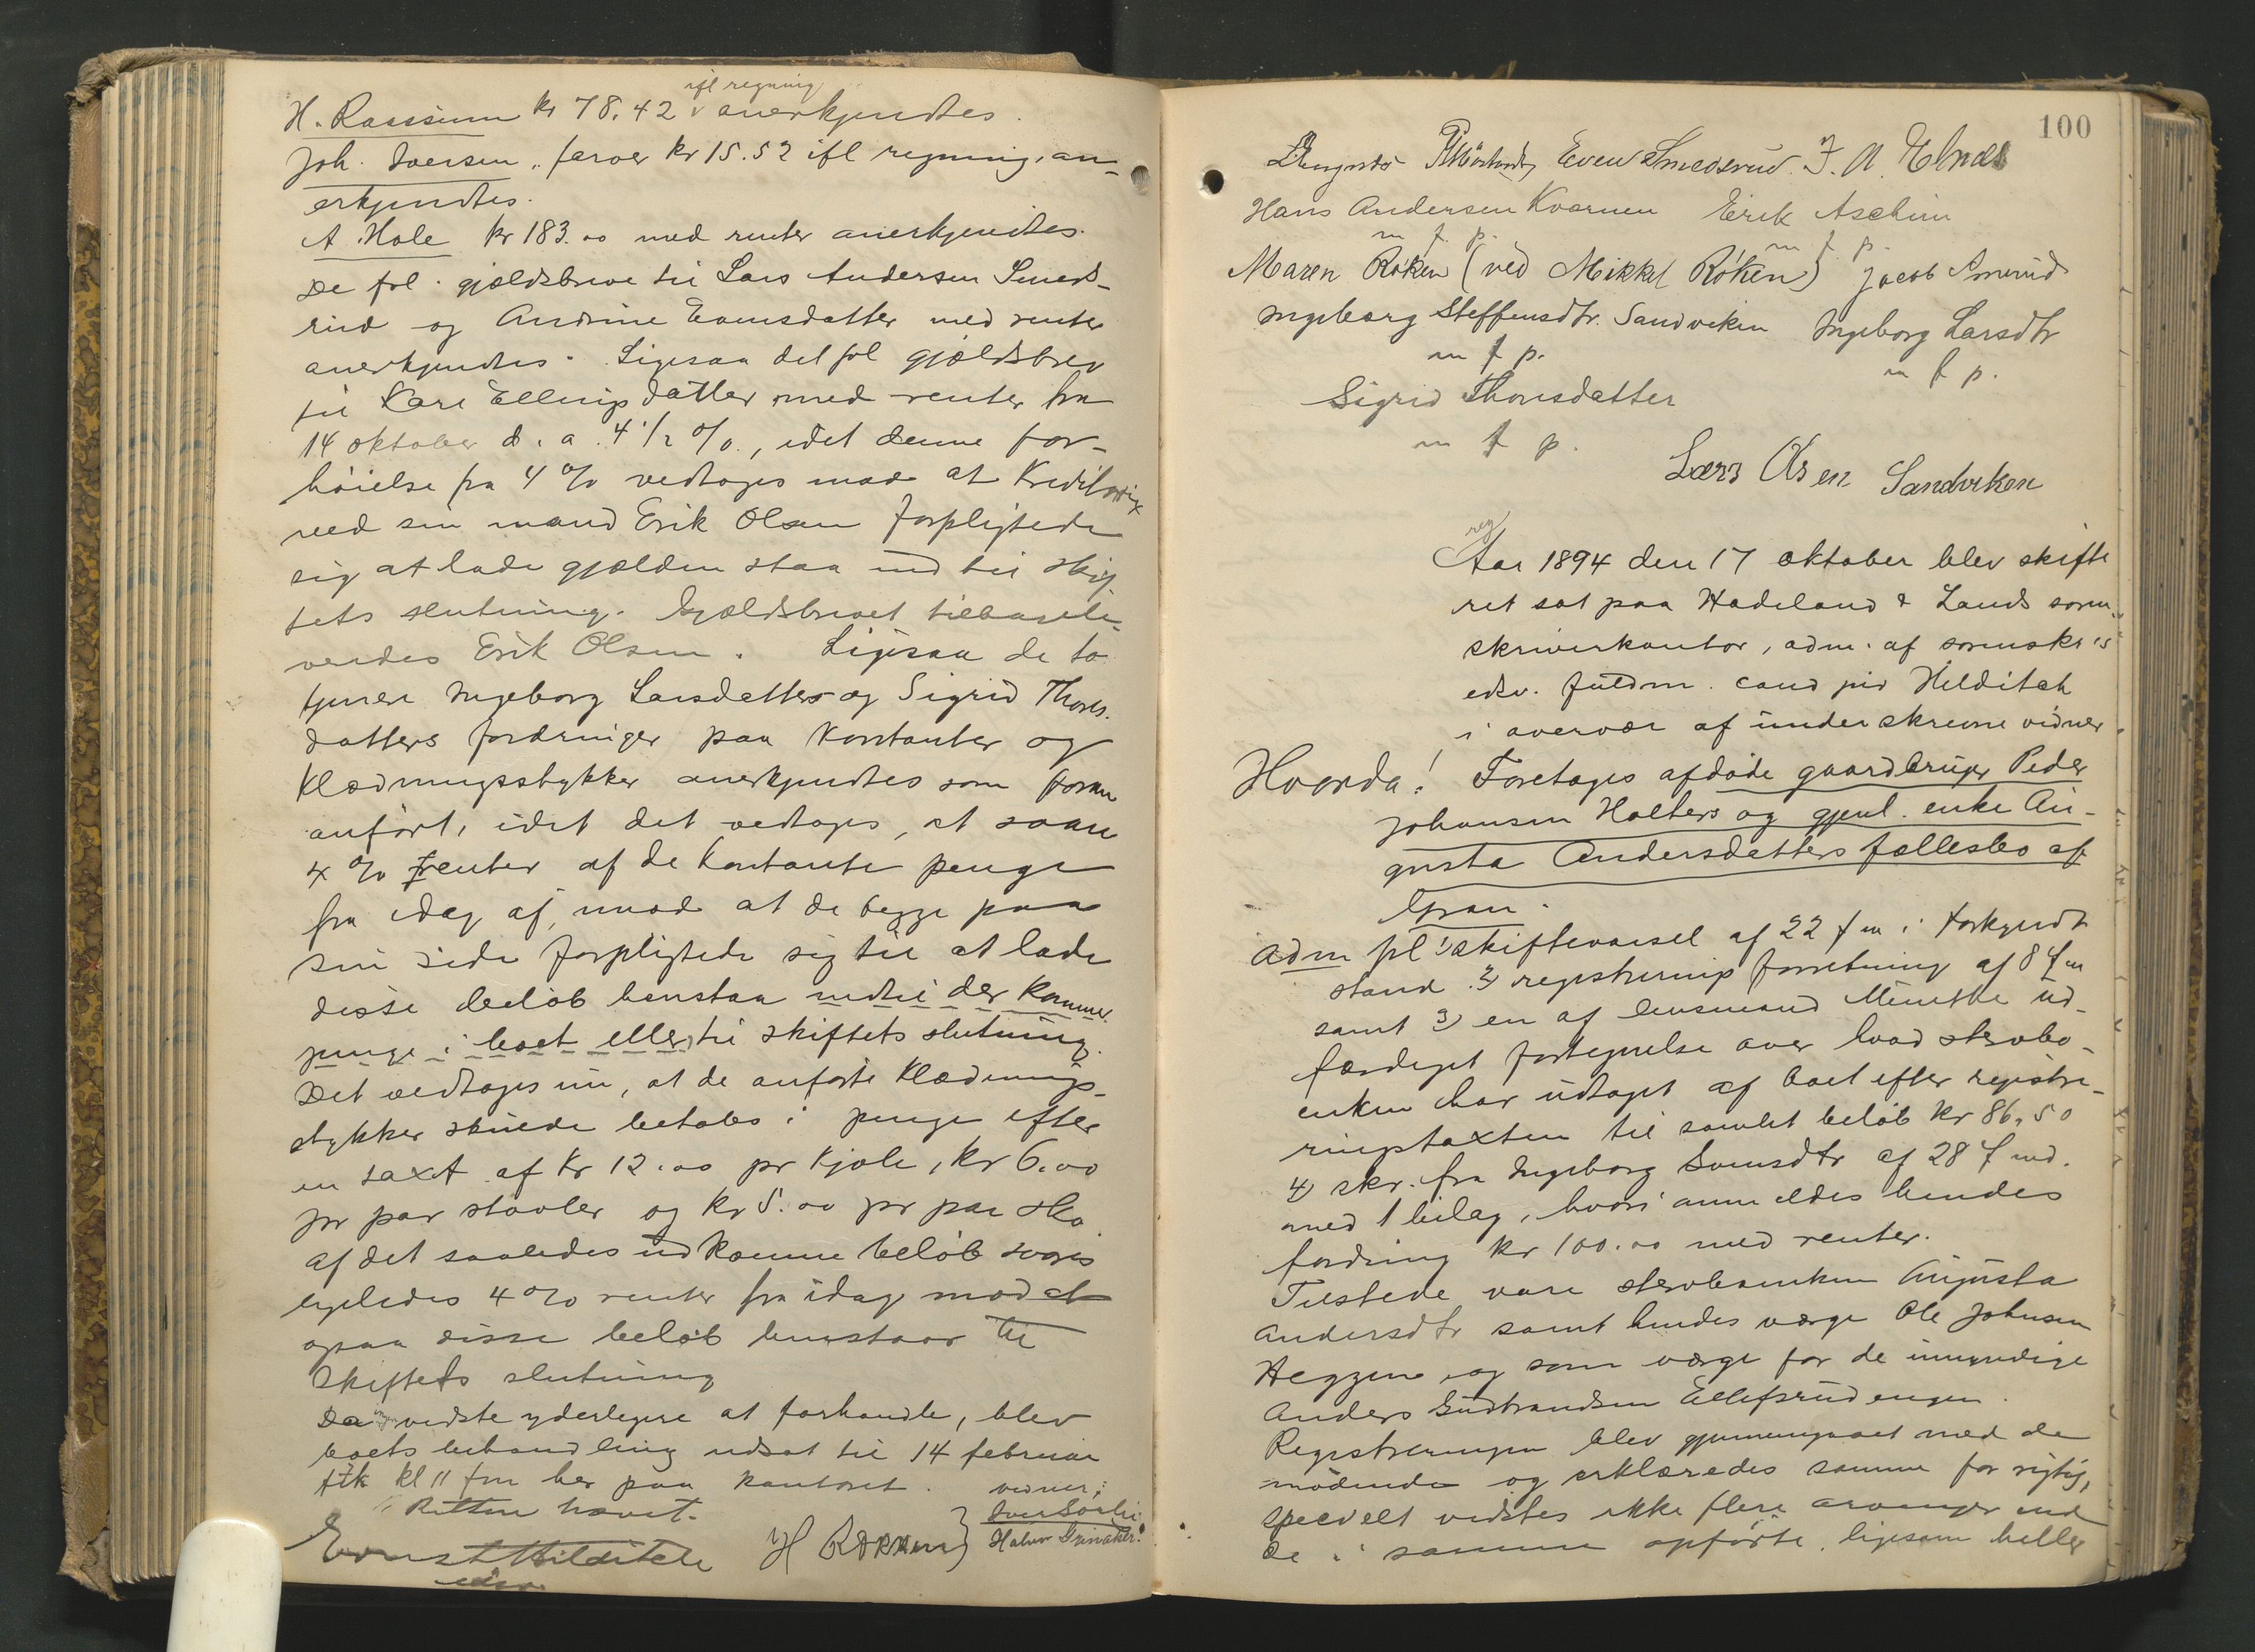 ifl regning
H. Rassum kr 78.42 v anerkjendtes.
Joh. Iversen, farver kr 15.52 ifl regning, an-
erkjendtes.
A. Hole kr 183.00 med renter anerkjendtes.
De frl. gjældsbreve til Lars Andersen Smeds-
rud og Andrine Evensdatter med renter
anerkjendtes. Ligesaa det frl gjældsbrev
til Kari Ellingsdatter med renter fra
14 oktober d. a. 4 1/2 %, idet denne for-
høielse fra 4 % vedtoges mod at Kreditorix
ved sin mand Erik Olsen forpligtede
sig at lade gjælden staa ind til skif
tets slutning. Gjældsbrevet tilbageli-
veredes Erik Olsen. Ligesaa de to
tjenere Ingeborg Larsdatters og Sigrid Thors-
datters fordringer paa Kontanter og
Klædningsstykker anerkjendtes som foran
anført, idet det vedtoges, at svare
4 % renter af de kontante penge
fra idag af, mod at de begge paa
sin side forpligtede sig til at lade
disse beløb henstaa indtil der kommer
penge i boet eller til skiftets slutning.
Det vedtoges nu, at de anførte Klædnings-
stykker skulde betales i penge efter
en taxt af kr 12.00 pr kjole, kr 6.00
pr par støvler og kr 5.00 pr par sko
af det saaledes udkomne beløb svares
ligeledes 4 % renter fra idag mod at
ogsaa disse beløb henstaar til
Skiftets slutning
Da ingen vidste yderligere at forhandle, blev
boets behandling udsat til 14 februar
ftk kl 11 fm her paa kontoret. vidner:
Retten hævet. Iver Sørlie
Ernst Hilditch H Røken } Halvor Grinaker.
edsv.
100
Even Smedsrud. J. A. Elnæs
Hans Andersen Kvarnen Erik Aschim
m f. p. m f p.
Maren Røken (ved Mikkel Røken) Jacob Amrud
Ingeborg Steffensdtr. Sandviken Ingeborg Larsdtr
m f p. m f p.
Sigrid Thorsdatter
m f p.
Lars Olsen Sandviken
reg
Aar 1894 den 17 oktober blev skifte
ret sat paa Hadeland & Lands soren-
skriverkontor, adm. af sorenskr's
edsv. fuldm. cand jur Hilditch
i overvær af underskrevne vidner.
Hvorda! Foretoges afdøde gaardbruger Peder
Johansen Holters og gjenl. enke Au-
gusta Andersdatters fællesbo af
Gran.
Adm frl 1) skiftevarsel af 22 f m i forkyndt
stand 2) registrerings forretning af 8 f m
samt 3) en af lensmand Minuthe ud-
færdiget fortegnelse over hvad stervbo-
enken har udtaget af boet efter registre-
ringstaxten til samlet beløb kr 86.50
4) skr. fra Ingeborg Svensdtr af 28 f md.
med 1 bilag, hvori anmeldes hendes
fordring kr 100.00 med renter.
Tilstede vare stervboenken Augusta
Andersdtr samt hendes værge Ole Johnsen
Heggen og som værge for de umyndige
Anders Gudbrandsen Ellefsrudengen.
Registreringen blev gjennemgaaet med de
mødende og erklæredes samme for rigtig,
specielt vidstes ikke flere arvinger end
de i samme opførte, ligesom heller